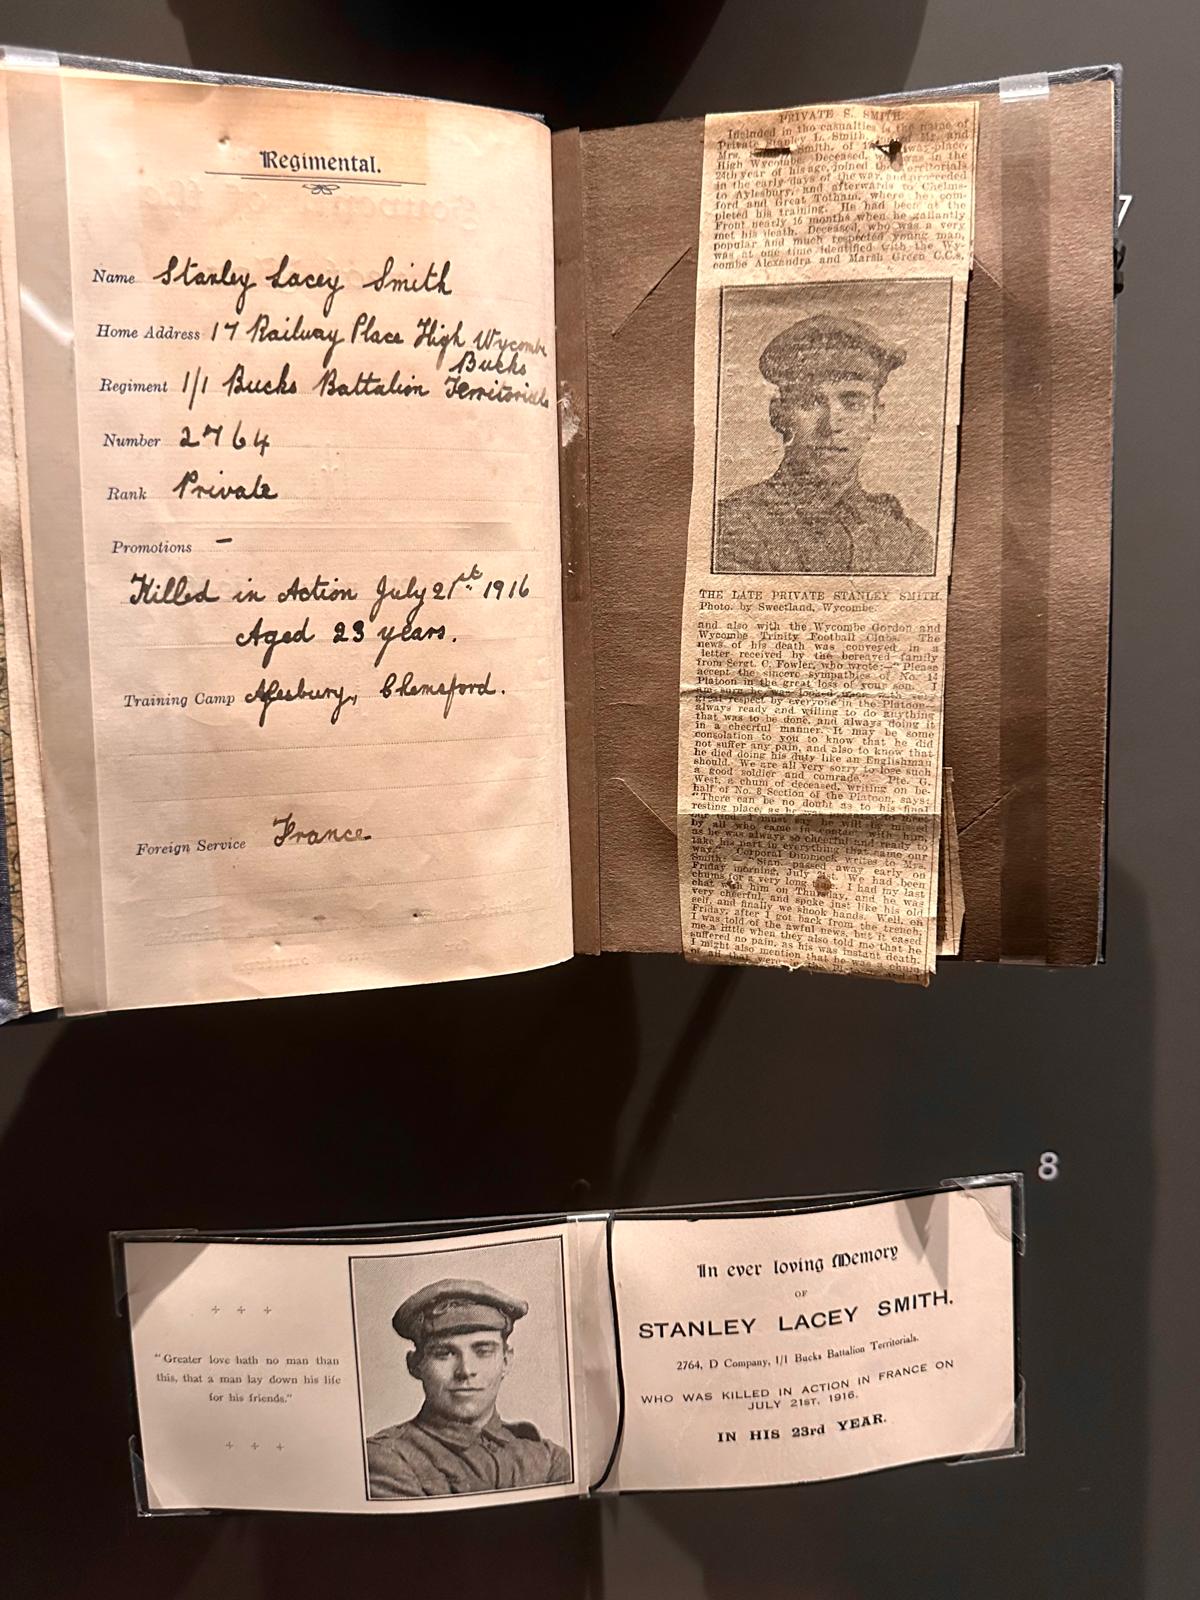 Regimental.
Name Stanley Lacey Smith
Home Address 17 Railway Place High Wycombe
Bucks
Regiment 1/1 Bucks Battalion Territorials
Number 2764
Rank Private
Promotions –
Killed in Action July 21st 1916
Aged 23 years.
Training Camp Alesbury, Chemsford.
Foreign Service France
PRIVATE S. SMITH.
Included in the casualties is the name of
Private Stanley L. Smith, of Mr. and
Mrs. Smith, of
High Wycombe. Deceased, was in the
24th year of his age, joined the Territorials
in the early days of the war, and proceeded
to Aylesbury, and afterwards to Chelms-
ford and Great Totham, where he com-
pleted his training. He had been at the
Front nearly 16 months when he gallantly
met his death. Deceased, who was a very
popular and much respected young man,
was at one time identified with the Wy-
combe Alexandra and Marsh Green C.C.s,
THE LATE PRIVATE STANLEY SMITH.
Photo. by Sweetland, Wycombe.
and also with the Wycombe Gordon and
Wycombe Trinity Football Clubs. The
news of his death was conveyed in a
letter received by the bereaved family
from Sergt. C. Fowler, who wrote:—"Please
accept the sincere sympathies of No. 14
Platoon in the great loss of your son. I
am sure he was looked upon with very
great respect by everyone in the Platoon,
always ready and willing to do anything
that was to be done, and always doing it
in a cheerful manner. It may be some
consolation to you to know that he did
not suffer any pain, and also to know that
he died doing his duty like an Englishman
should. We are all very sorry to lose such
a good soldier and comrade." Pte. G.
West, a chum of deceased, writing on be-
half of No. 8 Section of the Platoon, says:
"There can be no doubt as to his final
resting place, as he
our God. I must say he will be missed
by all who came in contact with him,
as he was always so cheerful and ready to
take his part in everything that came our
way." Corporal Dimmock writes to Mrs.
Smith:—"Stan. passed away early on
Friday morning, July 21st. We had been
chums for a very long time. I had my last
chat with him on Thursday, and he was
very cheerful, and spoke just like his old
self, and finally we shook hands. Well, on
Friday, after I got back from the trench,
I was told of the awful news, but it eased
me a little when they also told me that he
suffered no pain, as his was instant death.
I might also mention that he was a chum
of all that were in the
7
8
"Greater love hath no man than
this, that a man lay down his life
for his friends."
In ever loving Memory
OF
STANLEY LACEY SMITH.
2764, D Company, 1/1 Bucks Battalion Territorials.
WHO WAS KILLED IN ACTION IN FRANCE ON
JULY 21ST. 1916.
IN HIS 23rd YEAR.